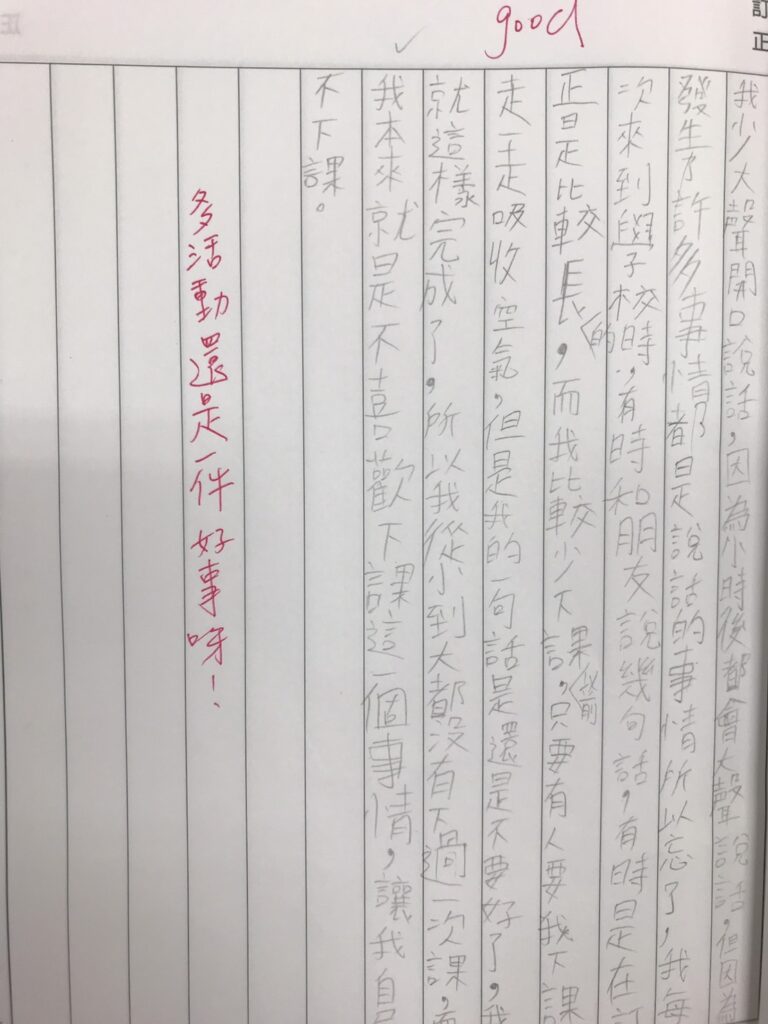 訂正
good
我少大聲開口說話，因為小時後都會大聲說話，但因為
發生了許多事情都是說話的事情所以忘了，我每
次來到學校時，有時和朋友說幾句話，有時是在訂
正是比較長的，而我比較少下課，只要有人要我下課
走一走吸收空氣，但是我的一句話是還是不要好了，我
就這樣完成了，所以我從小到大都沒有下過一次課，而
我本來就是不喜歡下課這一個事情，讓我自
不下課。
多活動還是一件好事呀！